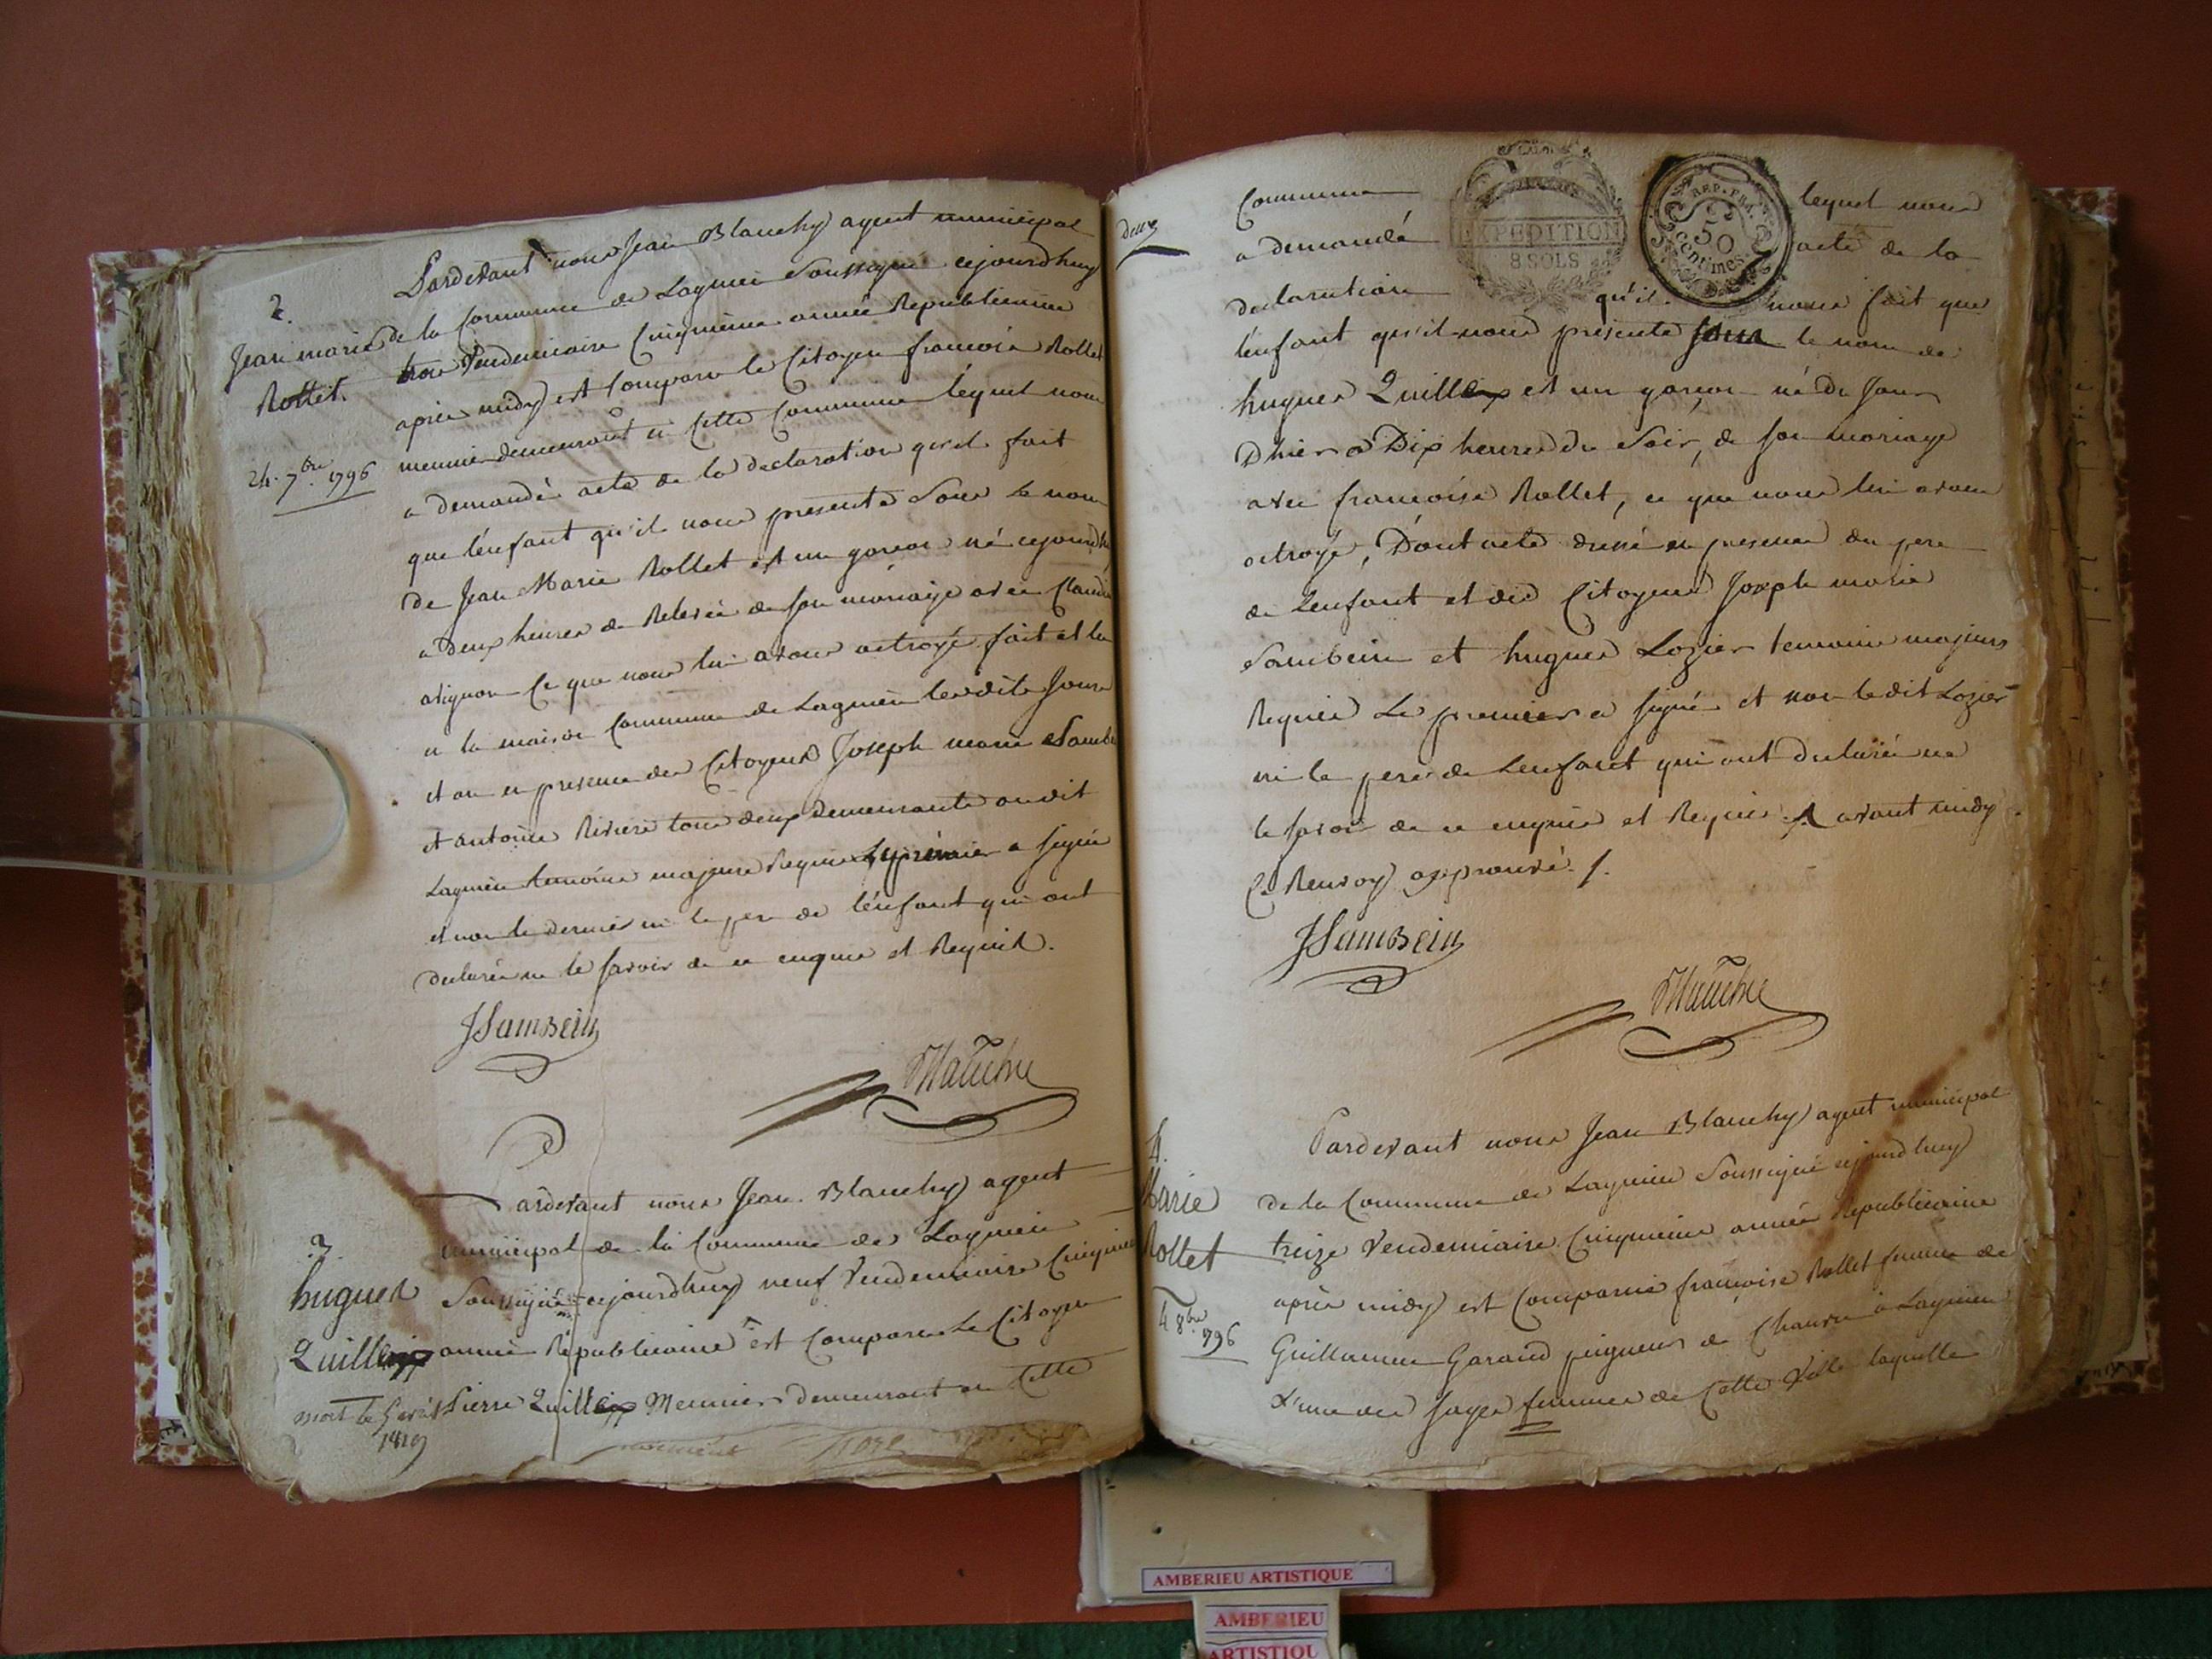 2.
Jean marie
Rollet.
24. 7.bre 1796
Pardevant nous Jean Blanchy agent municipal
de la Commune de Lagnieu Soussigné cejourdhuy
trois Vendemiaire Cinquième année Republicaine
après midy est Comparu le Citoyen francois Rollet
meunier demeurant en Cette Commune lequel nous
a demandé acte de la declaration qu'il fait
que l'enfant qu'il nous presente Sous le nom
de Jean Marie Rollet est un garcon né cejourdh
a deux heures de Relevée de son mariage avec Claudi
avignon Ce que nous lui avons octroyé fait et lu
a la maison Commune de Lagnieu lesdits Jours
et an en presence des Citoyens Joseph marie Sambe
et antoine Riviere tous deux demeurants audit
Lagnieu temoins majeurs Requis le premier a signé
et non le dernier ni le pere de l'enfant qui ont
declarés ne le savoir de ce enquis et Requis.
JSamBein
Blanchy
3.
hugues
Quilleux
mort le 5 avril
1819
Pardevant nous Jean Blanchy agent
municipal de la Commune de Lagnieu
Soussigné cejourdhuy neuf Vendemiaire Cinquiem
année Republicaine est Comparu Le Citoyen
Pierre Quilleux Meunier demeurant en Cette
deux
Commune lequel nous
EXPEDITION
8 SOLS
REP. FRA.
50
centimes
a demandé acte de la
declaration qu'il nous fait que
l'enfant qu'il nous presente sous le nom de
hugues Quilleux est un garcon né du Jour
Dhier a Dix heures du Soir, de son mariage
avec francoise Rollet, ce que nous lui avons
octroyé, Dont acte dressé en presence du pere
de l'enfant et des Citoyens Joseph marie
Sambein et hugues Lozier temoins majeurs
Requis Le premier a signé et non le dit Lozier
ni le pere de L'enfant qui ont declarés ne
le savoir de ce enquis et Requis. avant midy
Ce Renvoy approuvé.
JSamBein
Blanchy
4.
Marie
Rollet
4 8bre
1796
Pardevant nous Jean Blanchy agent municipal
de la Commune de Lagnieu Soussigné cejourdhuy
treize Vendemiaire Cinquieme année Republicaine
après midy est Comparue francoise Rollet femme de
Guillaume Garaud peigneur de Chanvre à Lagnieu
L'une des sages femmes de Cette Ville laquelle
AMBERIEU ARTISTIQUE
AMBERIEU
ARTISTIQU